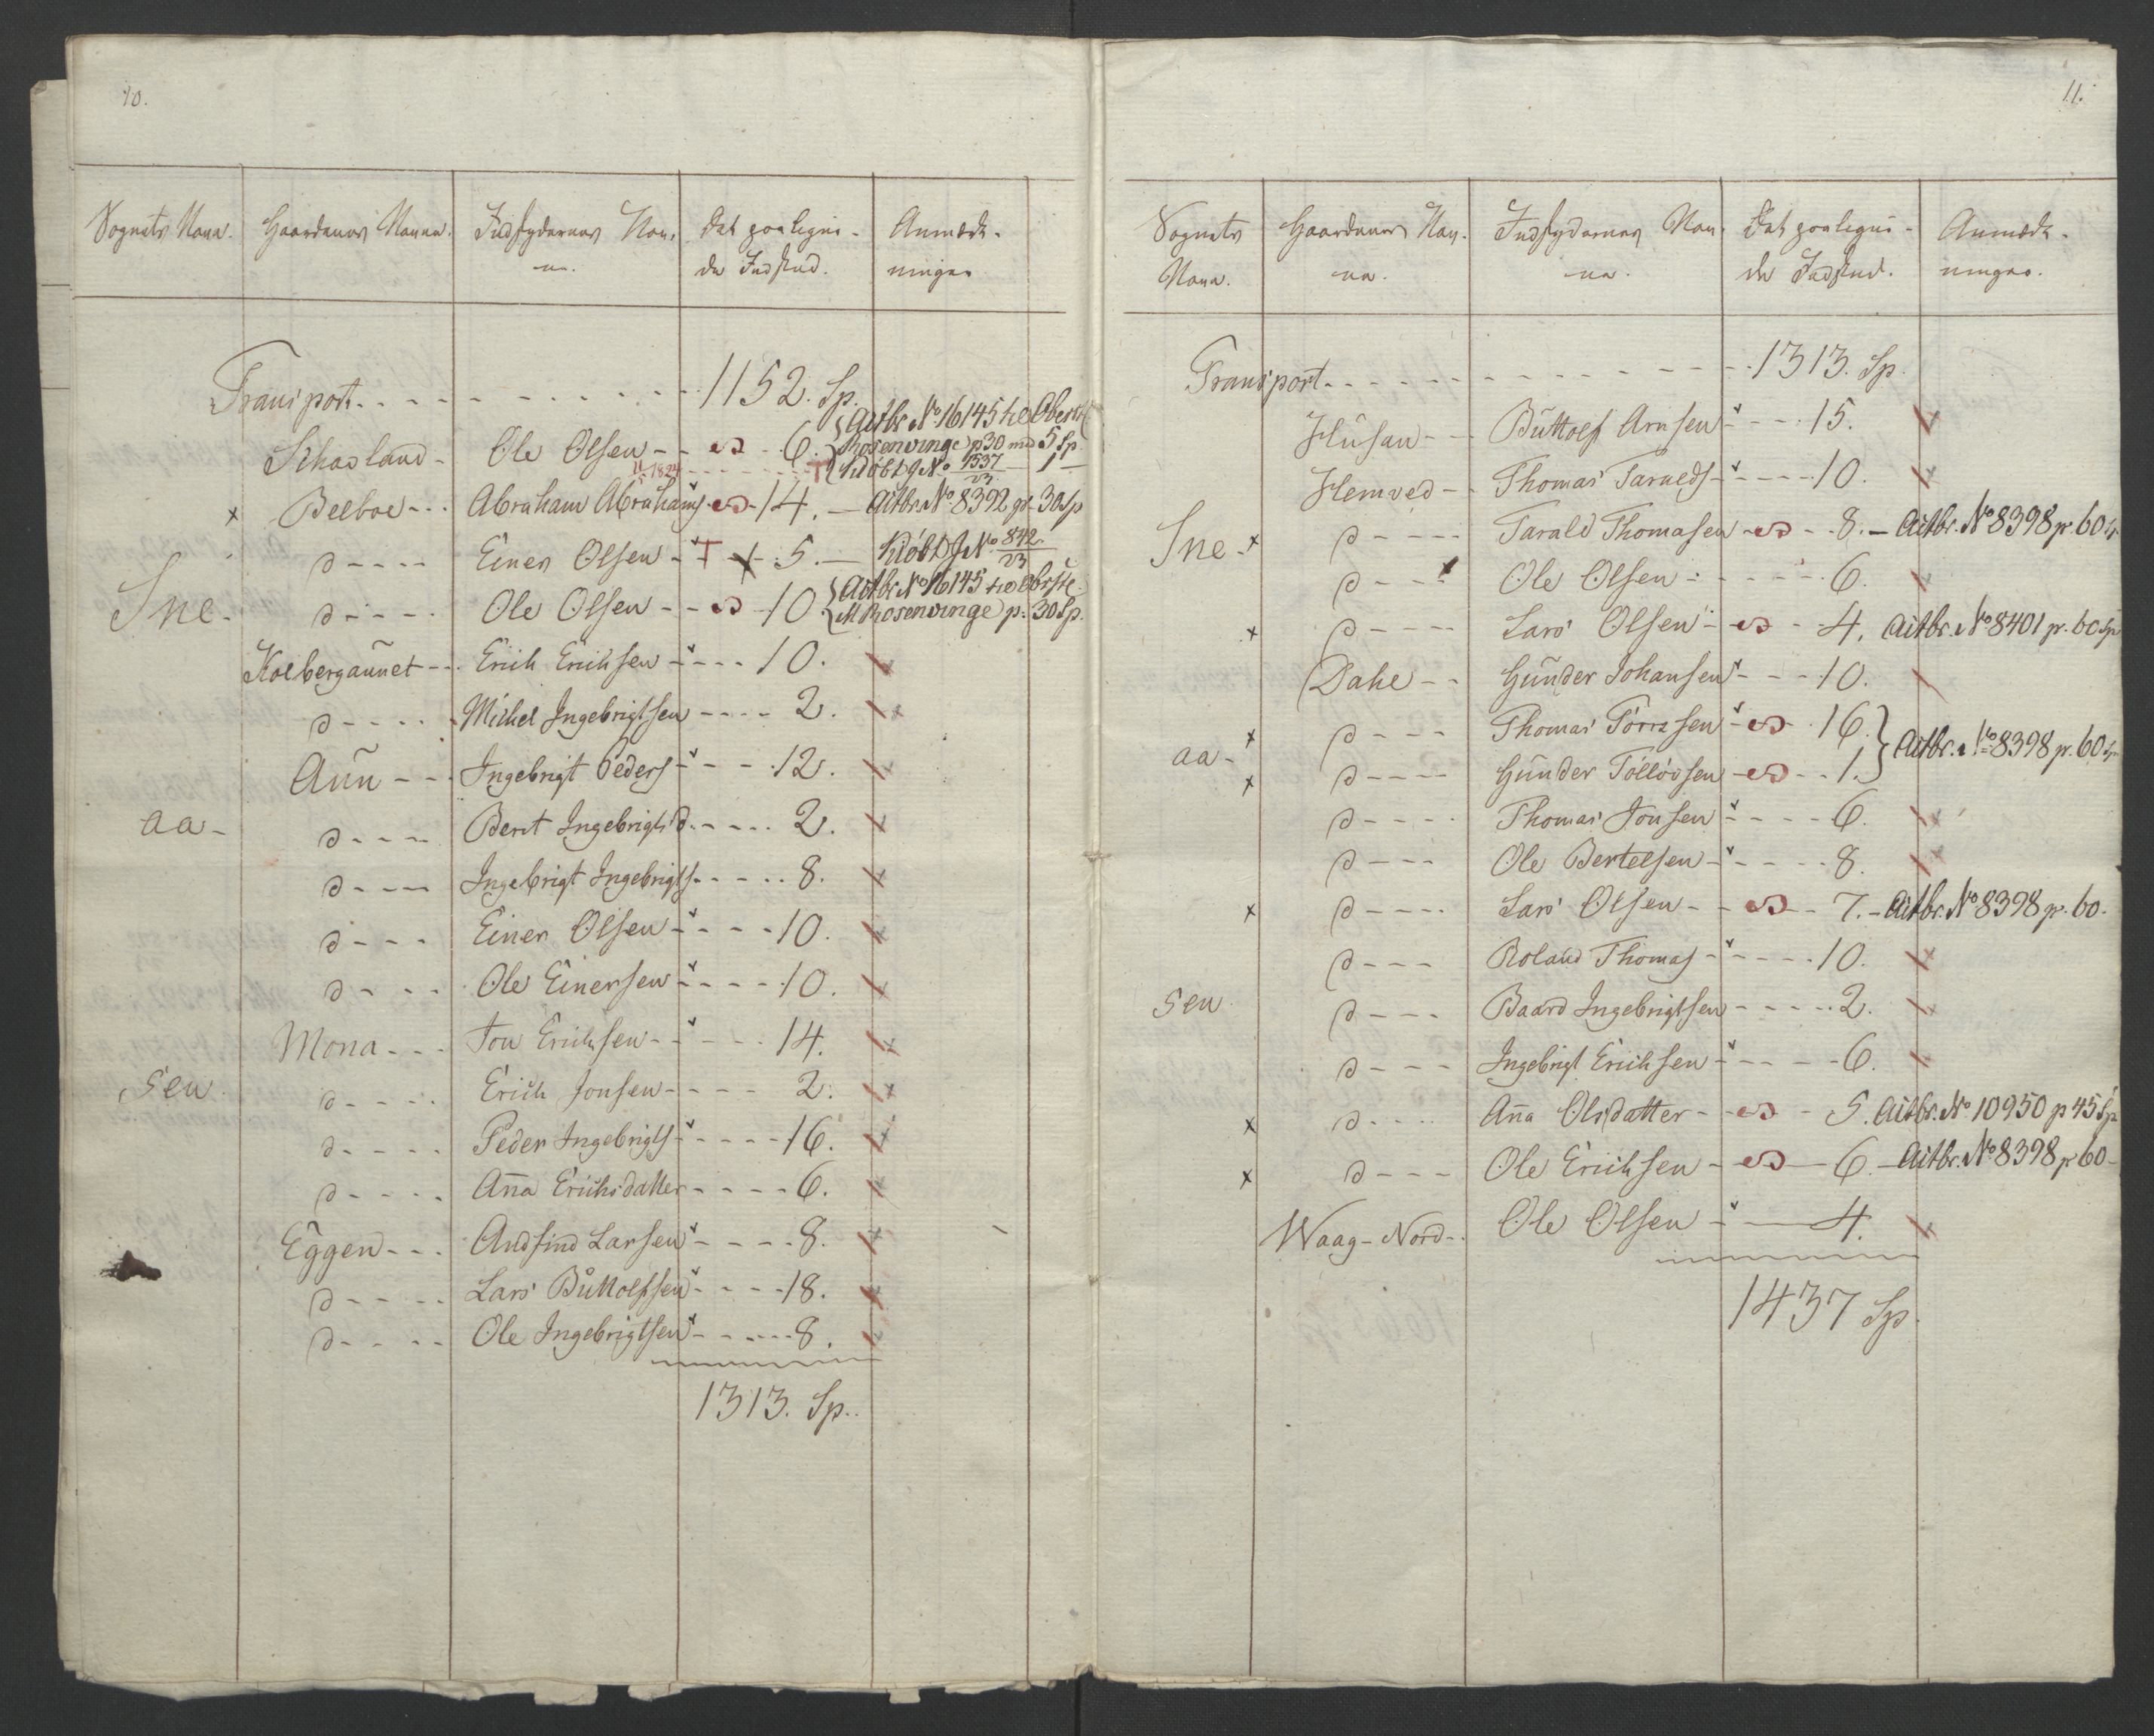 10.
Sognets Navn. Gaardenes Navne. Indskydernes Nav- Det paalignu- Anmærk-
ne. de Indskud. ninger
Transport. - - - - 1152. Sp.
Skarland - Ole Olsen - - 6. Actbr. No 16145 til Oberstl
Rosenvinge p 30 med 5 Sp
11/1824 T Kiöbt J No 1537/23 - 1 -
x Belboe - - Abraham Abrahams - 14. - Actbr. No 8392 pr. 30 Sp
d - - - - Einer Olsen - T - 5. - Kiöbt J No. 842/23
Sne- d - - - - Ole Olsen - - 10 Actbr. No 16145 til Obrstl.
M Rosenvinge p. 30 Sp.
Kolbergaunet - - Erich Erichsen - - - 10.
d - - - - Mikel Ingebrigtsen - - - - 2.
Aün - - Ingebrigt Peders - - - 12.
aa- d - - - - Berit Ingebrigts d. - - - 2.
d - - - Ingebrigt Ingebrigts. - - - - 8.
d - - - Einer Olsen - - - - 10.
d - - - - Ole Einersen - - - - 10.
Mona - - - Jon Erichsen - - - - 14.
sen. d - - - - Erich Jonsen - - - - 2.
d - - - - Peder Ingebrigts - - - - 16.
d - - - - Aña Erichsdatter - - - - 6.
Eggen - - - Andfind Larsen - - - - 8.
d - - - - Lars Büttolfsen - - - - 18.
d - - - - Ole Ingebrigtsen - - - - 8.
1313. Sp.
11.
Sognets Gaardenes Nav- Indskydernes Nav- Det paalignu- Anmærk-
Navn. ne. ne. de Indskud. ninger.
Transport. - - - - 1313. Sp.
Hüsan - - Büttolf Arnsen - - - 15.
Hemved - - Thomas Taralds - - - - 10.
Sne- x d - - - - Tarald Thomasen - - 8. - Actbr. No 8398 p. 60 Sp
d - - - Ole Olsen - - - - 6.
x d - - - - Lars Olsen - - 4. Actbr. No 8401 p. 60 Sp
Dahl - - Günder Johansen - - - 10.
aa- x d - - - Thomas Törrisen - - 16.
} Actbr. No 8398 pr. 60 Sp
x d - - - - Günder Tölløvsen - - - 1.
d - - - - Thomas Jonsen - - - - 6.
d - - - Ole Bertelsen - - - - 8.
x d - - - - Lars Olsen - - - 7. - Actbr. No 8398 p. 60.
d - - - Roland Thomas - - - - 10.
sen d - - - Baard Ingebrigtsen - - - - - 2.
d - - - Ingebrigt Erichsen - - - - 6.
x d - - - - Aña Olsdatter - - - 5. Actbr. No 10950 p 45 Sp
x d - - - Ole Erichsen - - 6. - Actbr. No 8398 p 60 -
Waag - Nord - Ole Olsen - - 4.
1437 Sp.